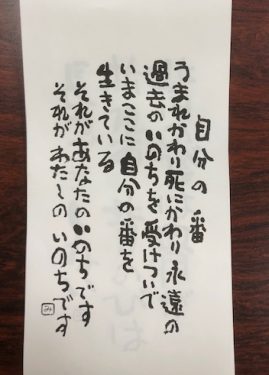 自分の番
うまれかわり死にかわり永遠の
過去のいのちを受けついで
いまここに自分の番を
生きている
それがあなたのいのちです
それがわたしのいのちです
み